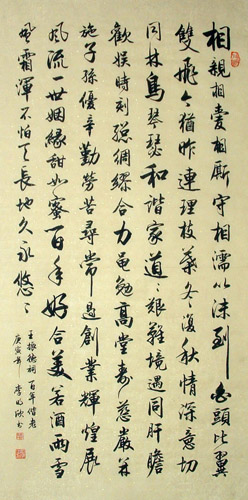 相親相愛相厮守相濡以沫到白頭比翼
雙飛今猶昨連理枝葉冬復秋情深意切
同林鳥琴瑟和諧家道〻艱難境遇同肝膽
歡娛時刻總綢繆合力黾勉高堂壽慈嚴并
施子孫優辛勤勞苦尋常過創業輝煌展
風流一世姻緣甜如蜜百年好合美若酒雨雪
風霜渾不怕天長地久永悠〻
王振德詞百年偕老
庚寅年